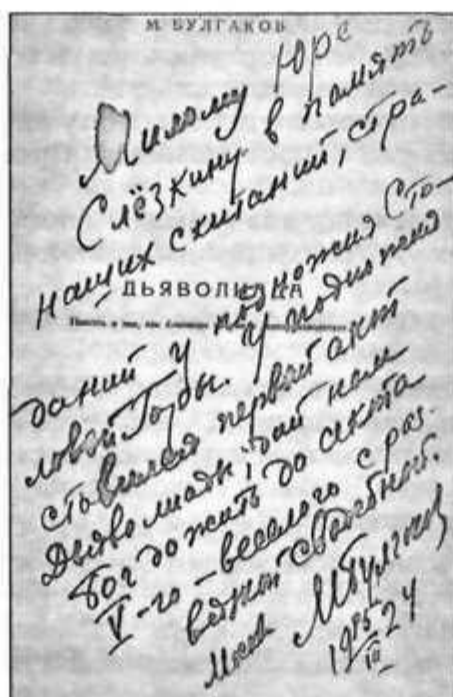 М. БУЛГАКОВ
Милому Юре
Слёзкину в память
наших скитаний, стра-
ДЬЯВОЛИАДА
даний у подножия Сто-
ловой Горы. У подножия
ставился первый акт
Дьяволиады; дай нам
Бог дожить до акта
V-го – веселого с раз-
вязкой свадебной.
М. Булгаков
1924